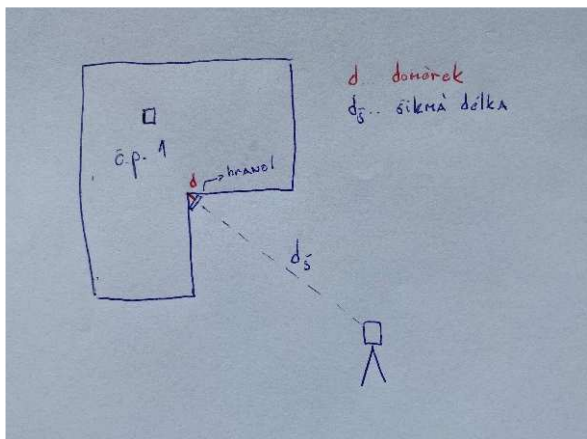 d... doměrek
dš.. šikmá délka
č.p. 1
d
hranol
dš